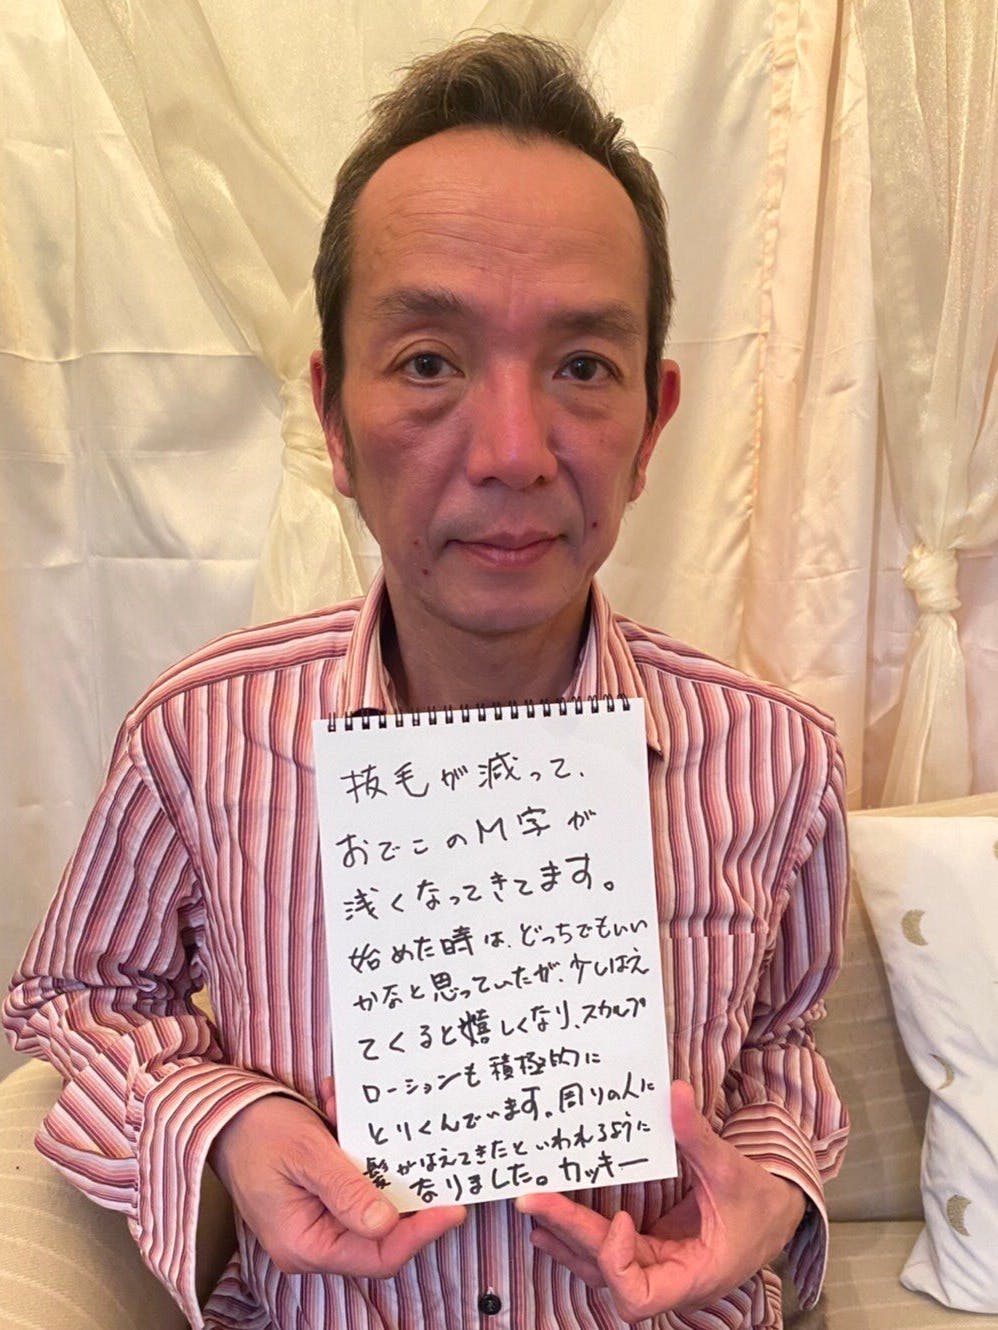 抜毛が減って、
おでこのM字が
浅くなってきてます。
始めた時は、どっちでもいい
かなと思っていたが、少しはえ
てくると嬉しくなり、スカルプ
ローションも積極的に
とりくんでいます。周りの人に
髪がはえてきたといわれるように
なりました。カッキー